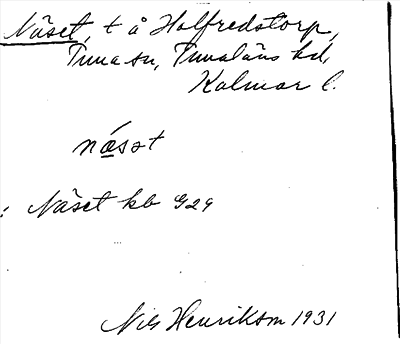 Näset, t å Halfredstorp,
Tuna sn, Tunaläns hd,
Kalmar l.
näsot
: Näset kb G29
Nils Henrikson 1931